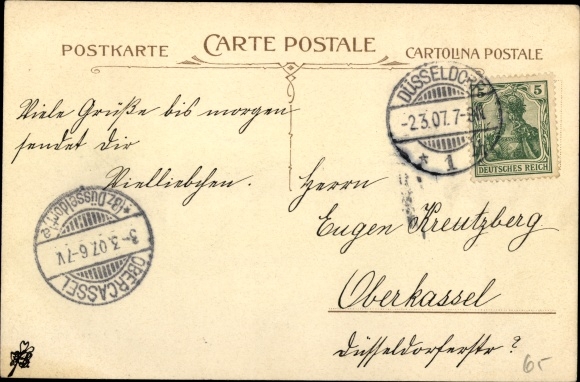 POSTKARTE CARTE POSTALE CARTOLINA POSTALE
DÜSSELDORF
-2.3.07.7-8N
* 1
5
DEUTSCHES REICH
Viele Grüße bis morgen
sendet dir
Vielliebchen.
Herrn
Eugen Kreutzberg
Oberkassel
Düsseldorferstr?
*(Bz. Düsseldorf)*
3-3.07.6-7V
OBERCASSEL
65